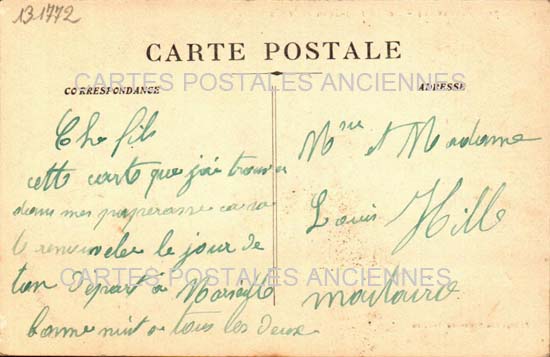 131772
CARTE POSTALE
CARTES POSTALES ANCIENNES
CORRESPONDANCE
ADRESSE
Che fils
cette carte que jai trouve
dans mes paperasse
le jour de
ton Départ à Marseille
bonne nuit a tous les deux
Mr et Madame
Louis Hille
CARTES POSTALES ANCIENNES